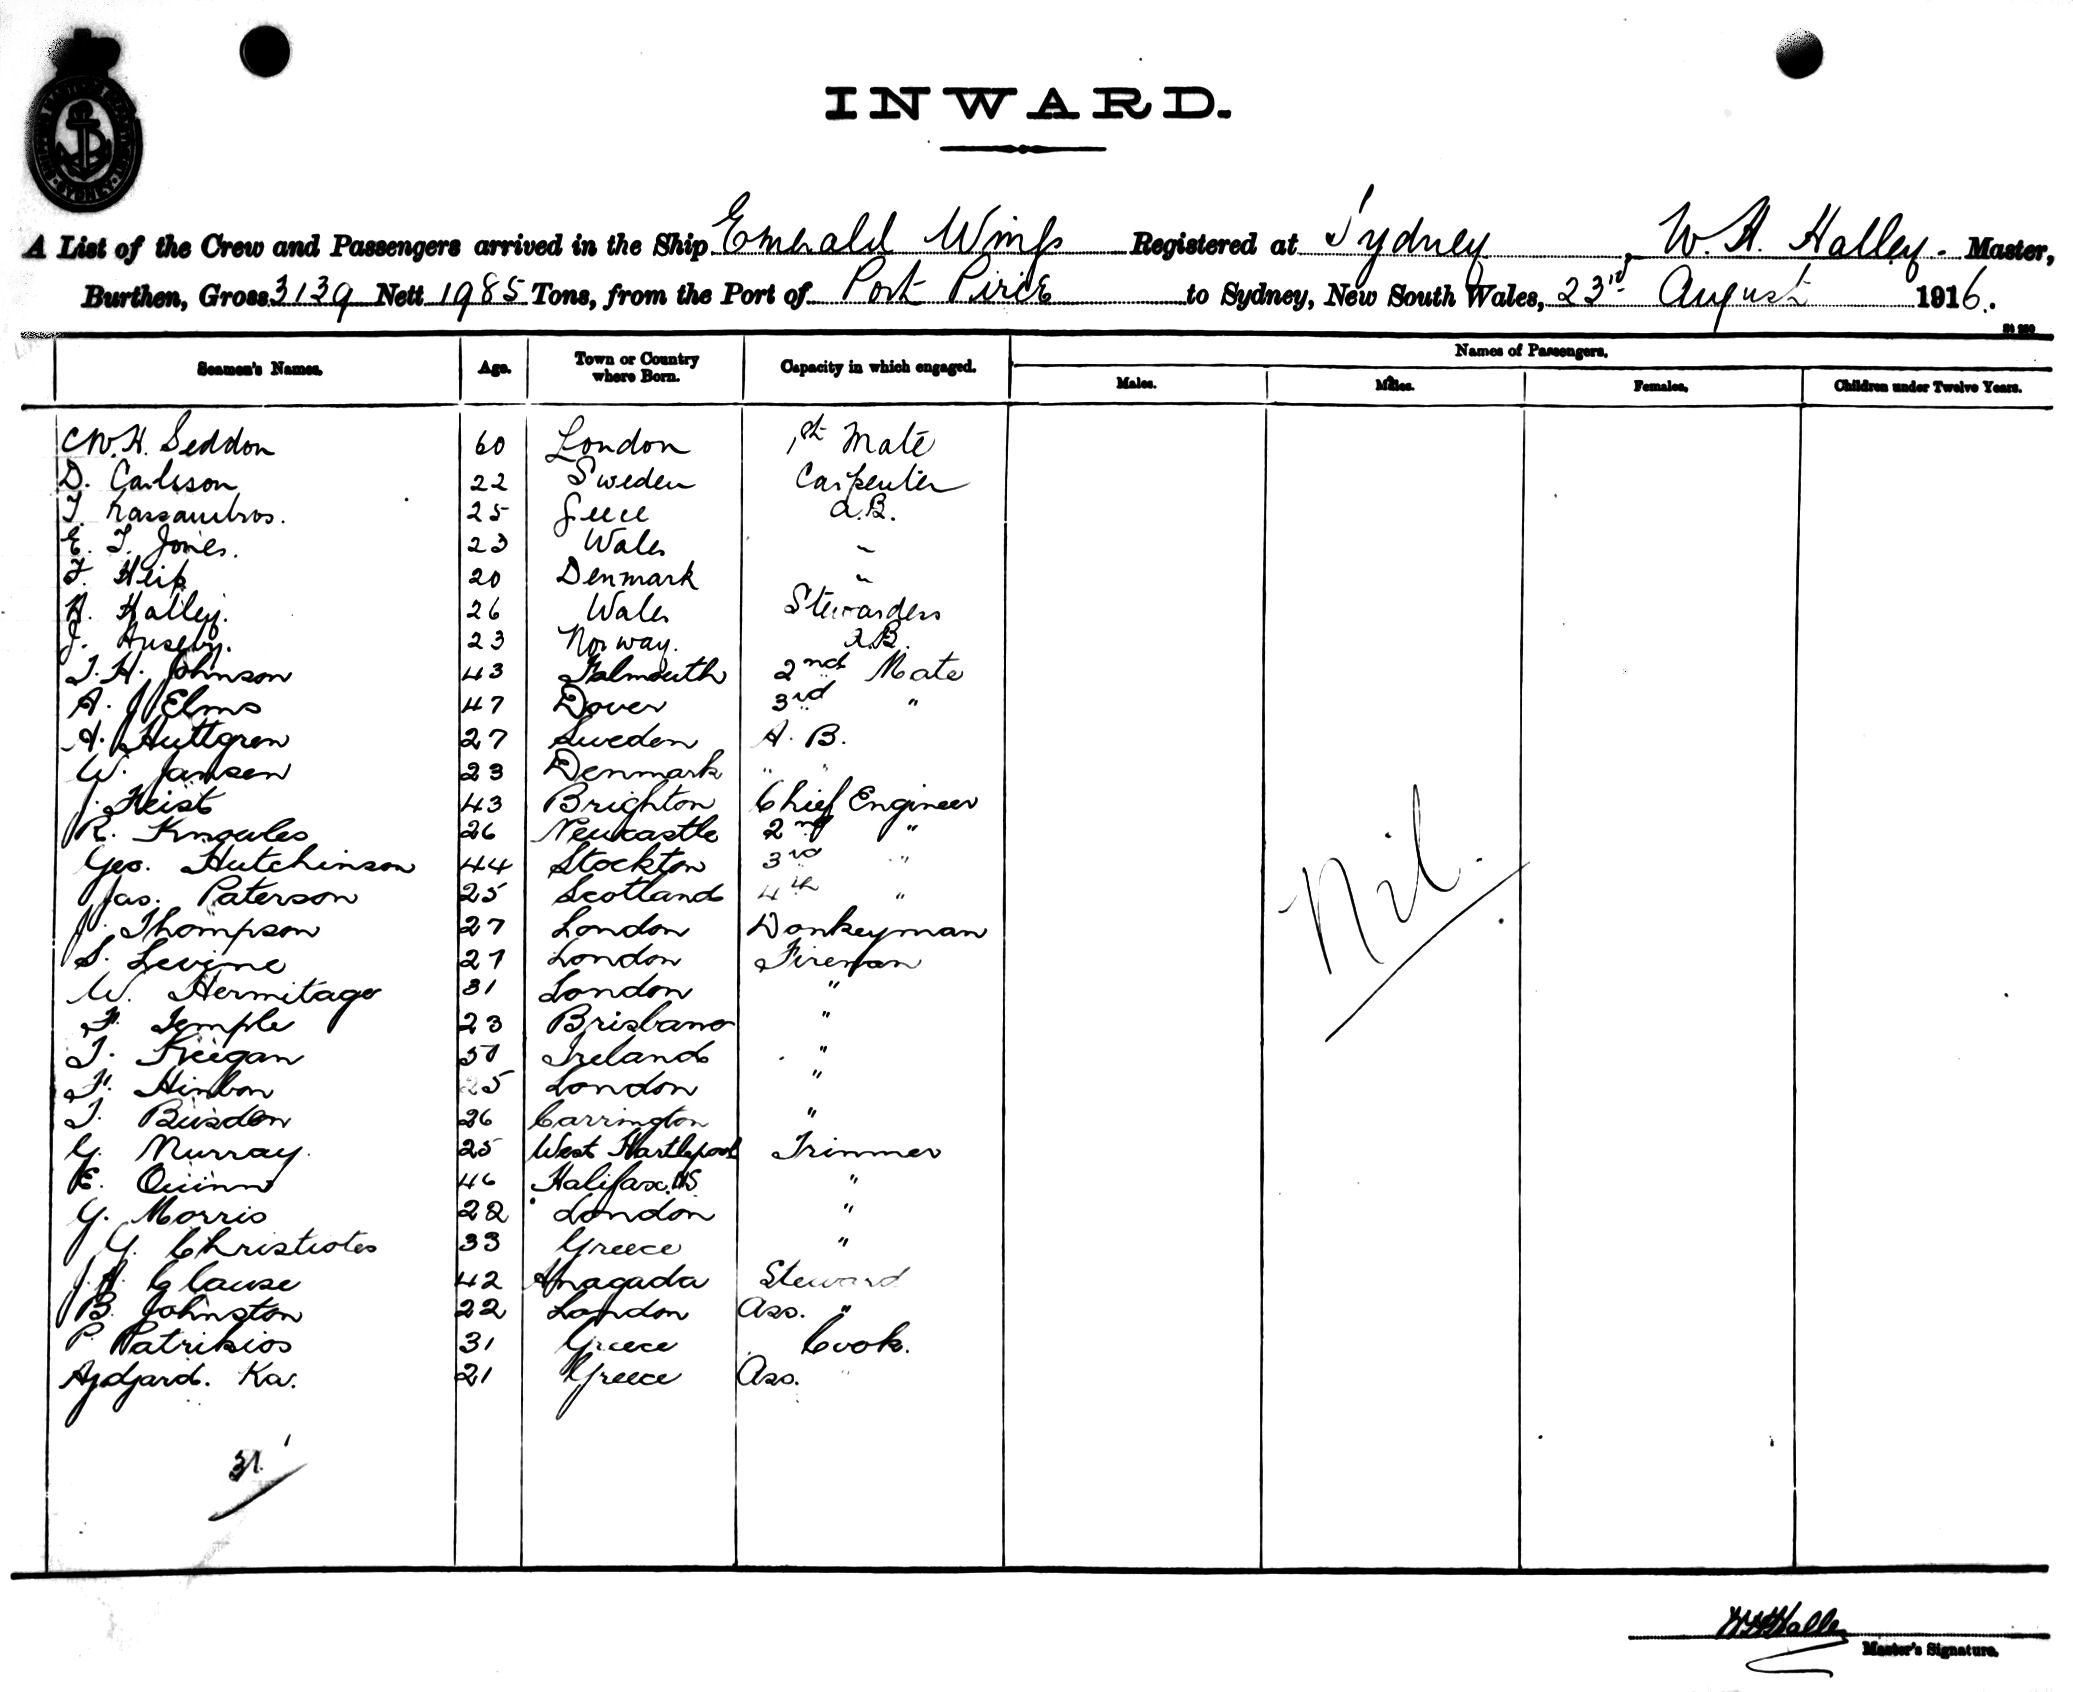 INWARD.
A List of the Crew and Passengers arrived in the Ship Emerald Wings Registered at Sydney, W. H. Halley. Master,
Burthen, Gross 3139 Nett 1985 Tons, from the Port of Port Pirie to Sydney, New South Wales, 23rd August 1916.
Seamen's Names. Age. Town or Country where Born. Capacity in which engaged. Names of Passengers.
Males. Males. Females. Children under Twelve Years.
W. H. Seddon 60 London 1st Mate
D. Carlsson 22 Sweden Carpenter
T. Kassambros. 25 Greece A.B.
E. T. Jones. 23 Wales "
F. 20 Denmark "
H. Halley. 26 Wales Stewardess
J. Huseby. 23 Norway. A.B.
T. H. Johnson 43 Falmouth 2nd Mate
A. J. Elms 47 Dover 3rd "
A. Huttgren 27 Sweden A. B.
W. Jansen 23 Denmark " "
J. Feist 43 Brighton Chief Engineer
R. Knowles 26 Newcastle 2nd "
Geo. Hutchinson 44 Stockton 3rd "
Jas. Paterson 25 Scotland 4th "
J. Thompson 27 London Donkeyman
S. Levine 27 London Fireman
W. Hermitage 31 London "
F. Temple 23 Brisbane "
T. Keegan Ireland "
F. 25 London "
T. Busden 26 Carrington "
G. Murray. 25 West Hartlepool Trimmer
E. Quinn 46 Halifax. NS "
G. Morris 22 London "
G. Christiotes 33 Greece "
J. A. Clause 42 Anagada Steward
B. Johnston 22 London Ass. "
P. Patrikios 31 Greece Cook.
Ka. 21 Greece Ass. "
Nil.
31
W H Halley
Master's Signature.